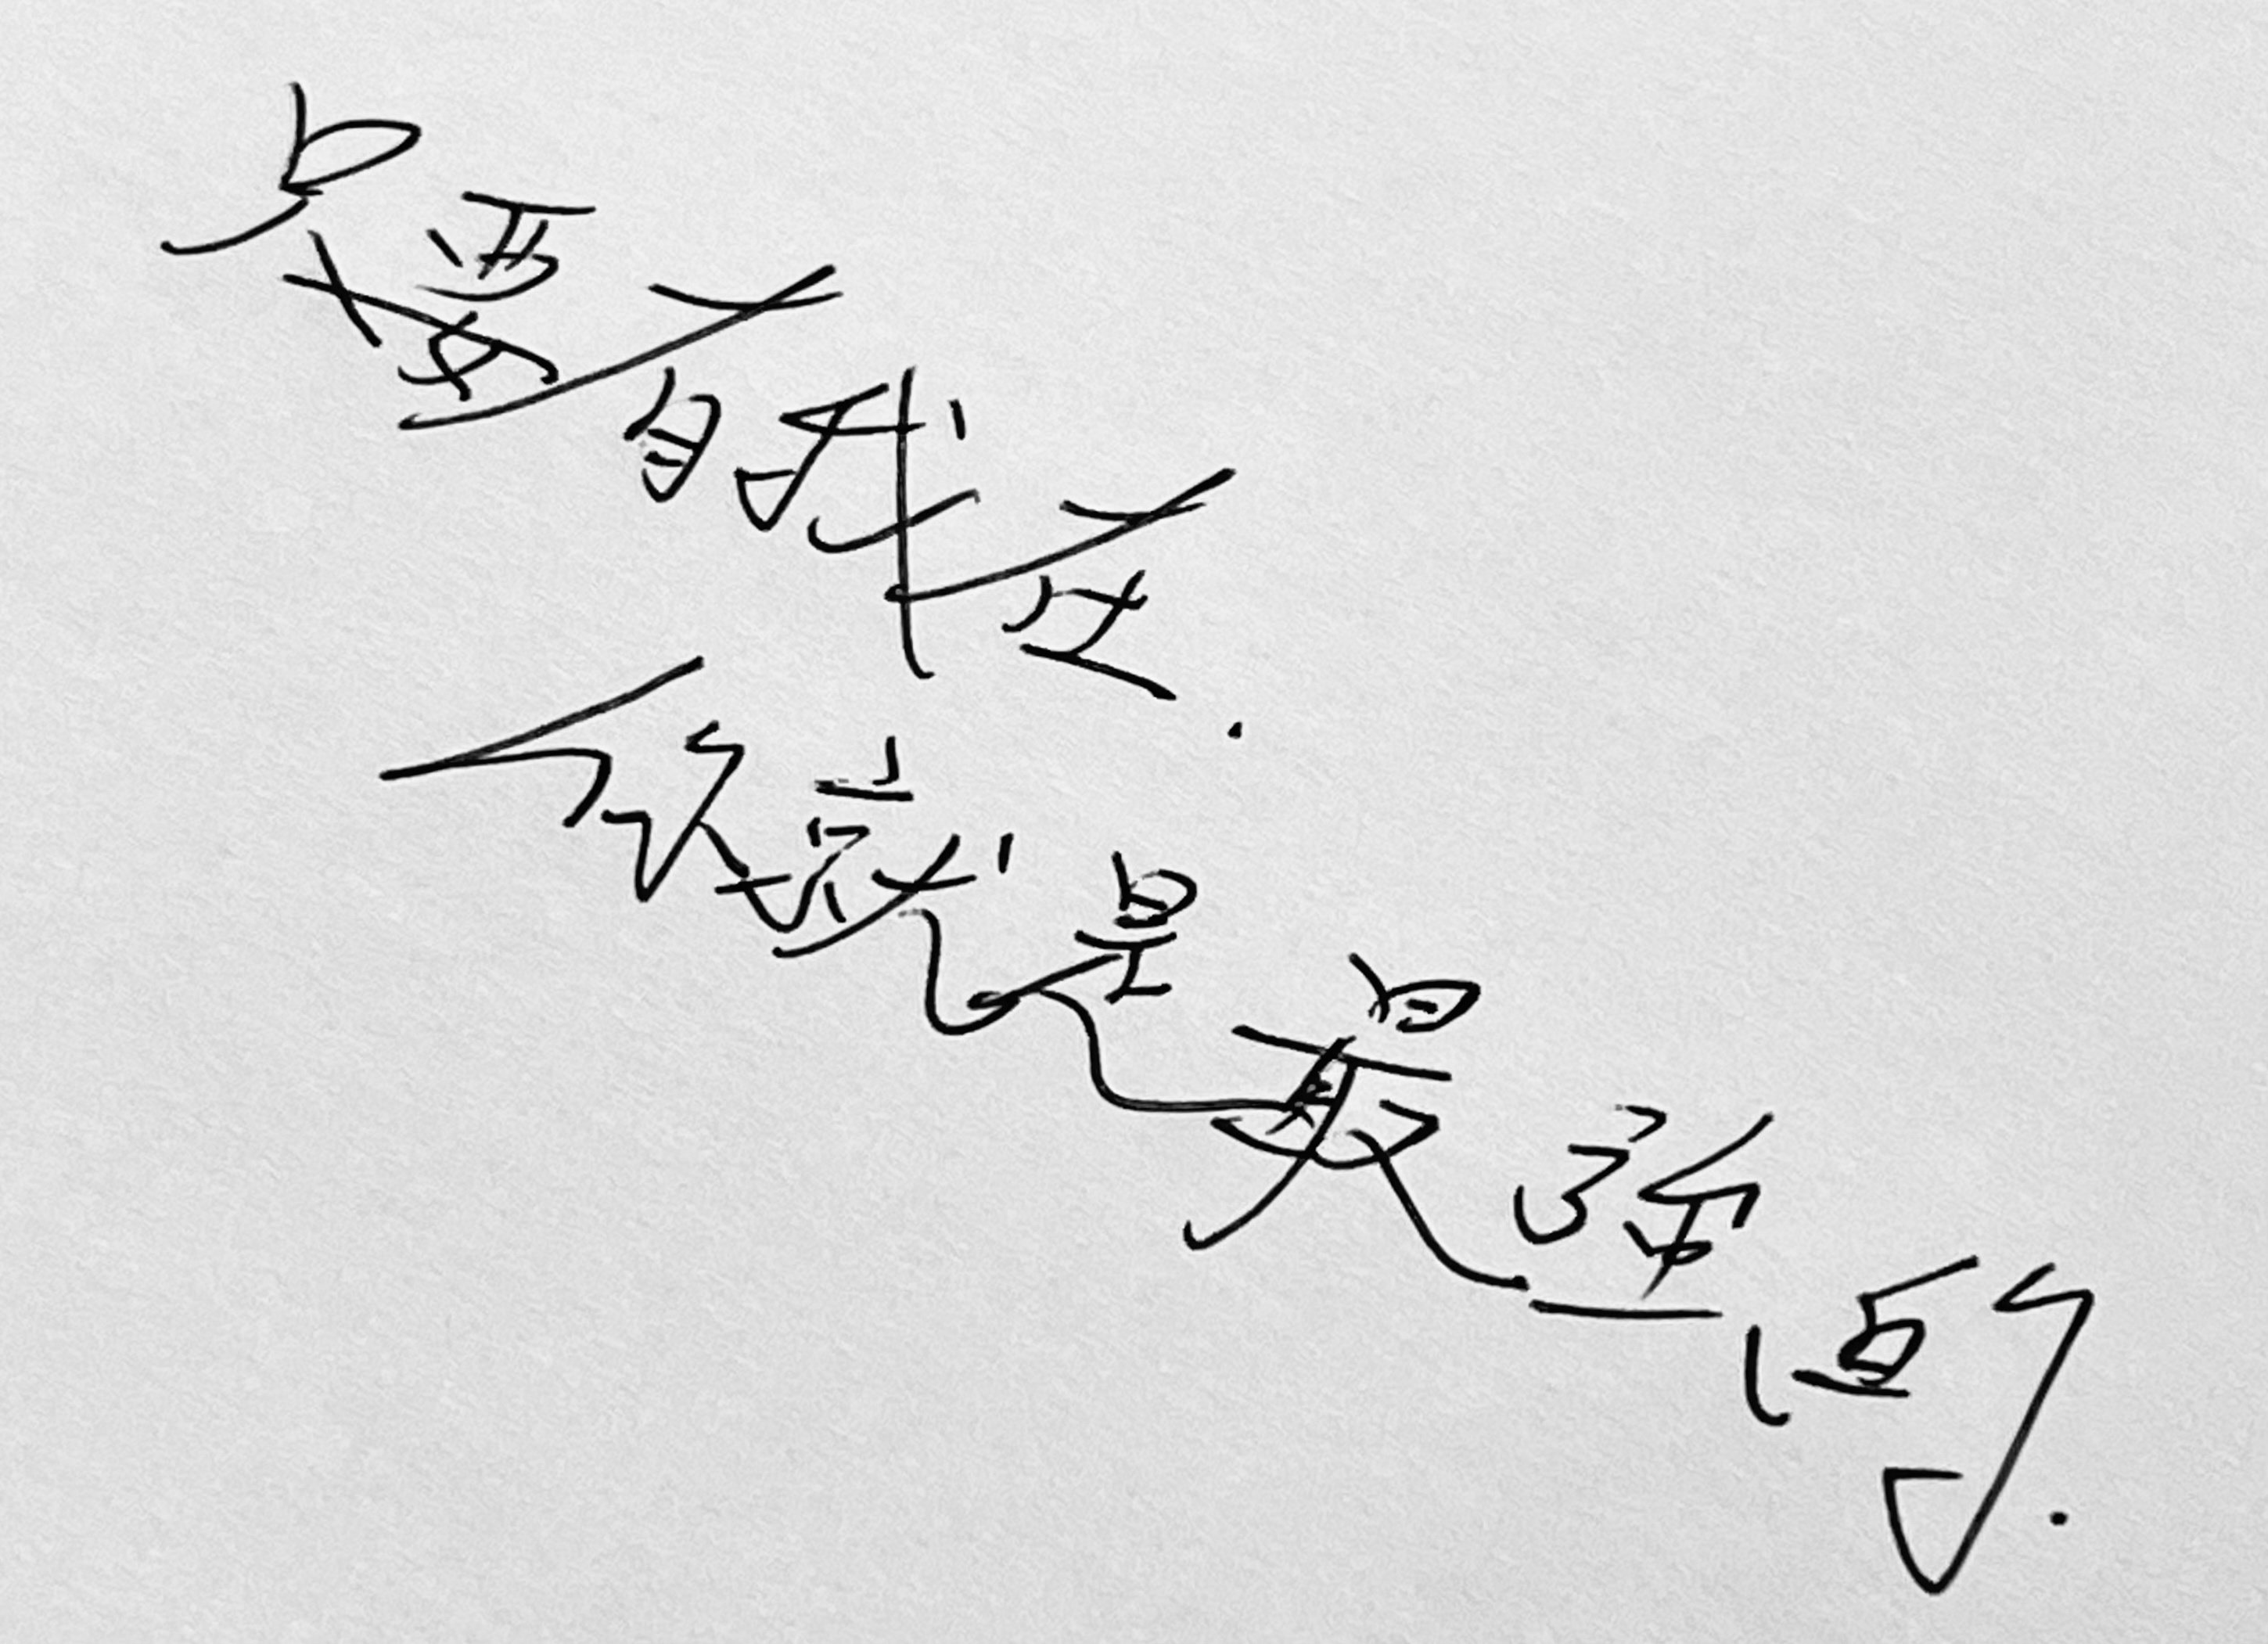 只要有我在.
你就是最强的.